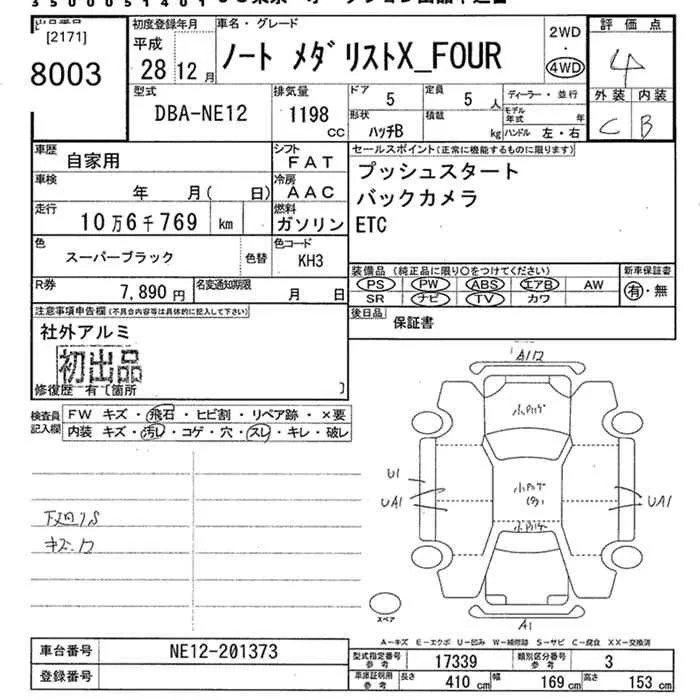 3500051401
[2171]
8003
初度登録年月
平成
28 12 月
車名・グレード
ノート メダリストX_FOUR
2WD
・
4WD
評価点
4
外装 内装
C B
型式
DBA-NE12
排気量
1198
CC
ドア
5
定員
5 人
ディーラー・並行
形状
ハッチB
積載
kg
モデル年式 年
ハンドル 左・右
車歴
自家用
シフト
FAT
車検
年 月( 日)
冷房
AAC
走行
10万6千769 km
燃料
ガソリン
色
スーパーブラック
色替
色コード
KH3
セールスポイント(正常に機能するものに限ります)
プッシュスタート
バックカメラ
ETC
R券
7,890 円
名変通知期限
月 日
装備品 (純正品に限り○をつけてください)
PS PW ABS エアB AW
SR ナビ TV カワ
新車保証書
有・無
後日品
保証書
注意事項申告欄(不具合内容等は具体的に記入して下さい)
社外アルミ
初出品
修復歴 有〔箇所 〕
検査員
記入欄
FW キズ・飛石・ヒビ割・リペア跡・×要
内装 キズ・汚レ・コゲ・穴・スレ・キレ・破レ
A1
U1
UA1
UA1
A1
スペア
A-キズ E-エクボ U-凹み W-補修跡 S-サビ C-腐食 XX-交換済
車台番号
NE12-201373
登録番号
型式指定番号
参考
17339
類別区分番号
参考
3
車庫証明用
参考
長さ 410 cm 幅 169 cm 高さ 153 cm